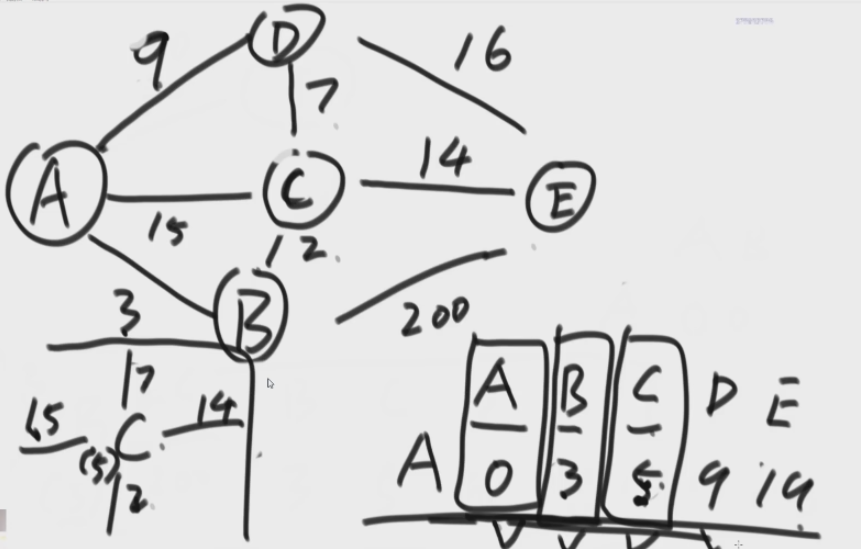 9 D 16
7
A C 14 E
15
2
3 B 200
7
15 C 14
(5)
2
A B C D E
A 0 3 5 9 19